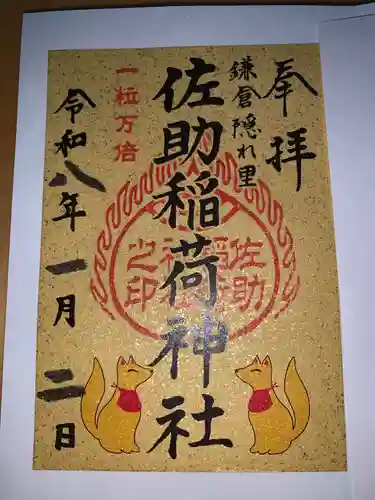 奉拝
鎌倉隠れ里
佐助稲荷神社
一粒万倍
令和八年一月二日
佐助
之印